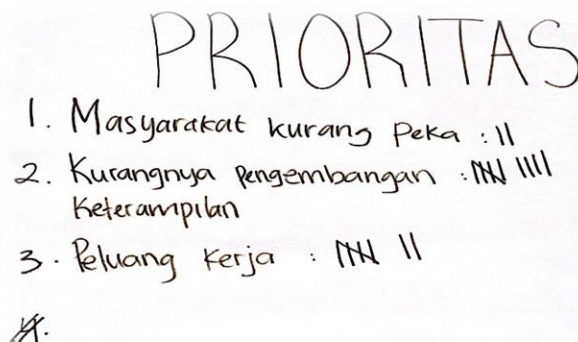 PRIORITAS
1. Masyarakat kurang peka : II
2. Kurangnya pengembangan : IIII IIII
Keterampilan
3. Peluang kerja : IIII II
4.